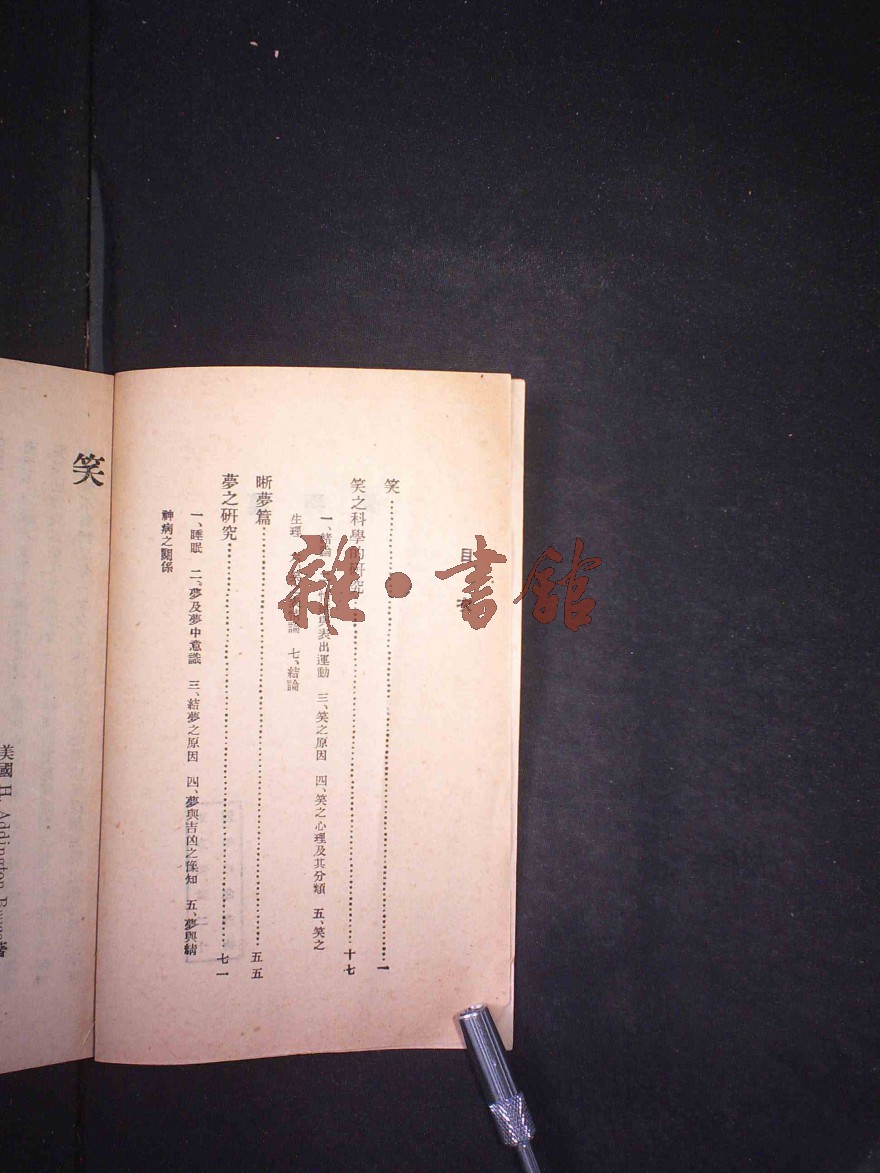 目次
笑…………一
笑之科學的研究…………十七
一、緒論 與表出運動 三、笑之原因 四、笑之心理及其分類 五、笑之
生理 論 七、結論
晰夢篇…………五五
夢之研究…………七一
一、睡眠 二、夢及夢中意識 三、結夢之原因 四、夢與吉凶之豫知 五、夢與精
神病之關係
笑
美國 H. Addington Bruce 著
雜·書館